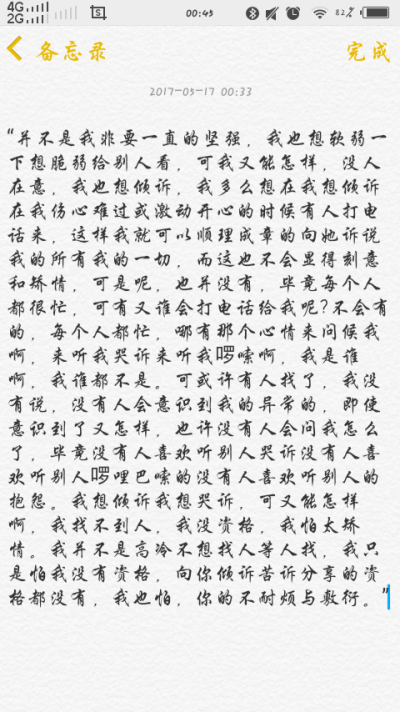 4G 2G 00:45 82%
备忘录 完成
2017-05-17 00:33
“并不是我非要一直的坚强，我也想软弱一
下想脆弱给别人看，可我又能怎样，没人
在意，我也想倾诉，我多么想在我想倾诉
在我伤心难过或激动开心的时候有人打电
话来，这样我就可以顺理成章的向她诉说
我的所有我的一切，而这也不会显得刻意
和矫情，可是呢，也并没有，毕竟每个人
都很忙，可有又谁会打电话给我呢?不会有
的，每个人都忙，哪有那个心情来问候我
啊，来听我哭诉来听我啰嗦啊，我是谁
啊，我谁都不是。可或许有人找了，我没
有说，没有人会意识到我的异常的，即使
意识到了又怎样，也许没有人会问我怎么
了，毕竟没有人喜欢听别人哭诉没有人喜
欢听别人啰哩巴嗦的没有人喜欢听别人的
抱怨。我想倾诉我想哭诉，可又能怎样
啊，我找不到人，我没资格，我怕太矫
情。我并不是高冷不想找人等人找，我只
是怕我没有资格，向你倾诉苦诉分享的资
格都没有，我也怕，你的不耐烦与敷衍。”